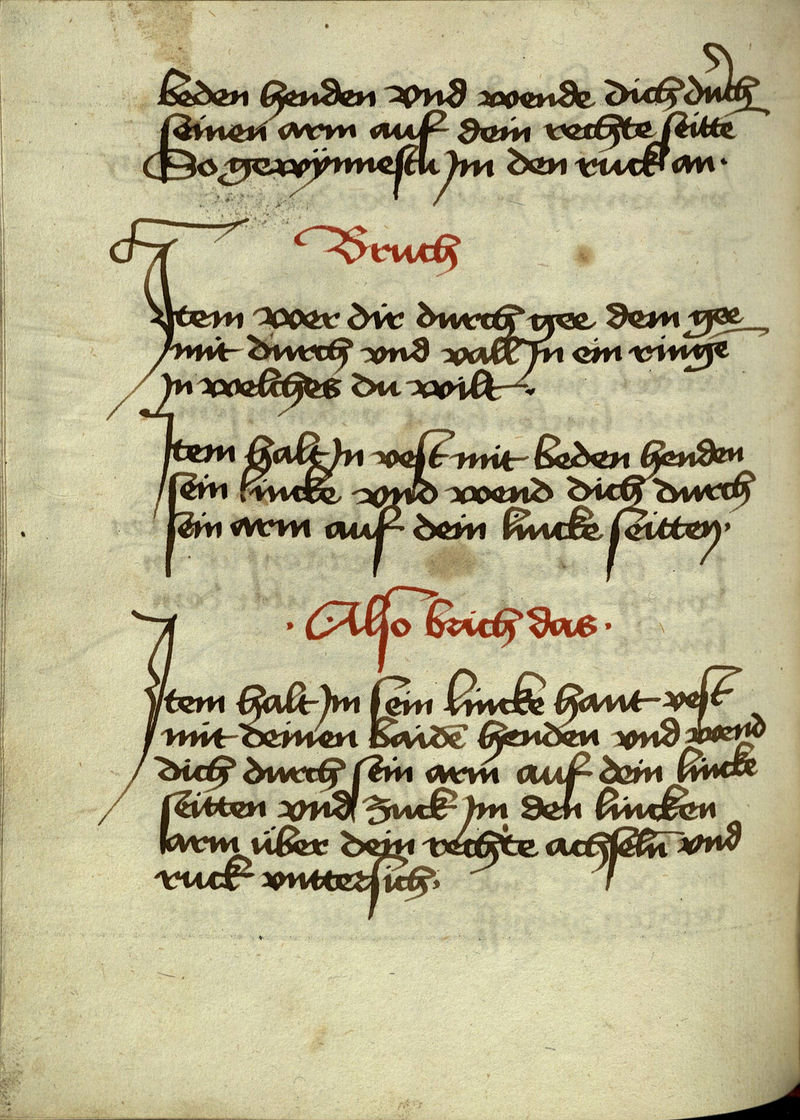 beden henden vnd wende dich durch
seinen arm auf dein rechte seitte
So gewÿnnestu Jm den ruck an·
Bruch
Jtem wer dir durch gee dem gee
mit durch vnd vall Jn ein ringe
Jn welches du wilt·
Jtem halt Jn vest mit beden henden
sein lincke vnd wend dich durch
sein arm auf dein lincke seitten·
·Also brich das·
Jtem halt Jm sein lincke hant vest
mit deinen baidē henden vnd wend
dich durch sein arm auf dein lincke
seitten vnd zuck Jm den lincken
arm über dein rechte achseln̄ vnd
ruck vnttersich·